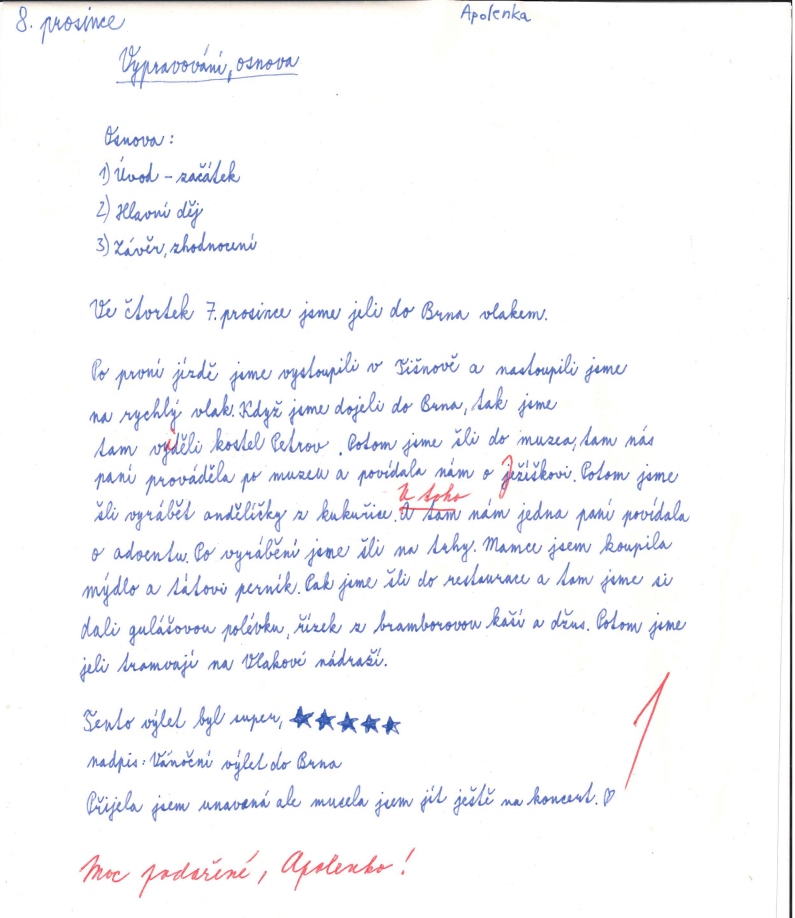 8. prosince
Apolenka
Vypravování, osnova
Osnova:
1) Úvod – začátek
2) Hlavní děj
3) Závěr, zhodnocení
Ve čtvrtek 7. prosince jsme jeli do Brna vlakem.
Po první jízdě jsme vystoupili v Tišnově a nastoupili jsme
na rychlý vlak. Když jsme dojeli do Brna, tak jsme
tam viděli kostel Petrov. Potom jsme šli do muzea, tam nás
paní prováděla po muzeu a povídala nám o Ježíškovi. Potom jsme
U toho
šli vyrábět andělíčky z kukuřice. A tam nám jedna paní povídala
o adventu. Po vyrábění jsme šli na trhy. Mamce jsem koupila
mýdlo a tátovi perník. Pak jsme šli do restaurace a tam jsme si
dali gulášovou polévku, řízek z bramborovou kaší a džus. Potom jsme
jeli tramvají na Vlakové nádraží.
Tento výlet byl super, ★★★★★
nadpis: Vánoční výlet do Brna
Přijela jsem unavená ale musela jsem jít ještě na koncert. ♡
1
Moc podařené, Apolenko!